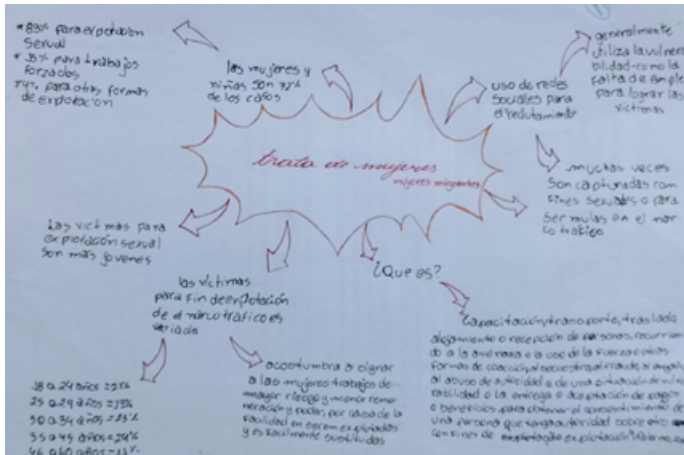 * 83% para explotacion
sexual
* 13% para trabajos
forzados
* 4% para otras formas
de explotación
las mujeres y
niñas son 72%
de los casos
uso de redes
sociales para
el reclutamiento
generalmente
utiliza la vulnera
bilidad como la
falta de emple
para lograr las
victimas
trata de mujeres
mujeres migrantes
muchas veces
son capturadas con
fines sexuales o para
ser mulas en el nar
co trafico
Las victimas para
explotación sexual
son más jovenes
las víctimas
para fin de explotación
de el narcotrafico es
variado
¿Que es?
18 a 24 años = 21%
25 a 29 años =
30 a 34 años =
35 a 45 años = 24%
46 a 60 años =
acostumbra a
a las mujeres trabajos de
mayor riesgo y menor remu
neración y por causa de la
facilidad en serem explotadas
y es facilmente sustituidas
Capacitación, transporte, traslado
alojamiento o recepción de personas, recurrien
do a la amenaza o la uso de la fuerza otras
formas de coacción, al secuestro, al fraude, al engaño,
al abuso de autoridad o de una situación de vulne
rabilidad o la entrega o aceptación de pagos
o beneficios para obtener el consentimiento de
una persona que tenga autoridad sobre otro
con fines de explotación